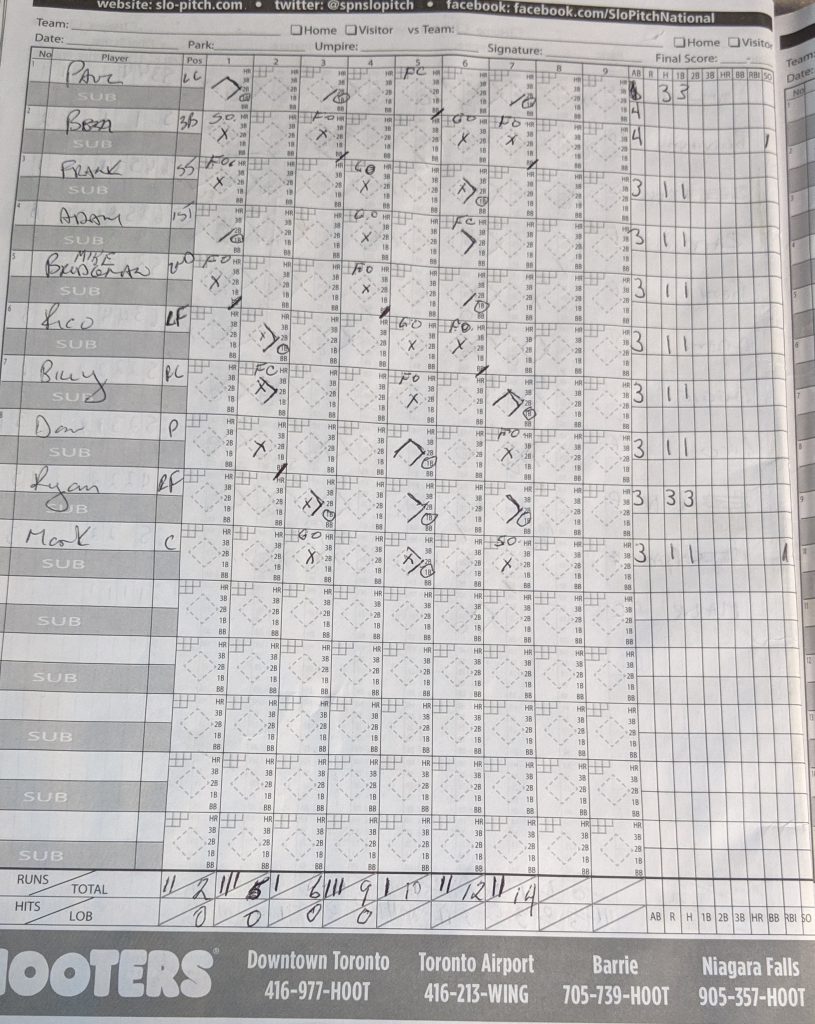 website: slo-pitch.com • twitter: @spnslopitch • facebook: facebook.com/SloPitchNational
Team: Home Visitor vs Team: Home Visitor
Date: Park: Umpire: Signature: Final Score:
No Player Pos 1 2 3 4 5 6 7 8 9 AB R H 1B 2B 3B HR BB RBI SO
1 PAUL LC FC 4 3 3
SUB
2 3B SO FO GO FO 4 1
SUB
3 FRANK SS GO 3 1 1
SUB
4 ADAM GO FC 3 1 1
SUB
5 MIKE FO FO 3 1 1
SUB
6 Rico RF GO FO 3 1 1
SUB
7 Billy RC FC FO 3 1 1
SUB
8 Dan P FO 3 1 1
SUB
9 Ryan RF 3 3 3
SUB
Mark C GO SO 3 1 1 1
SUB
SUB
SUB
SUB
SUB
SUB
RUNS TOTAL 2 5 6 9 10 12 14
HITS LOB 0 0 0 0 AB R H 1B 2B 3B HR BB RBI SO
HOOTERS
Downtown Toronto Toronto Airport Barrie Niagara Falls
416-977-HOOT 416-213-WING 705-739-HOOT 905-357-HOOT